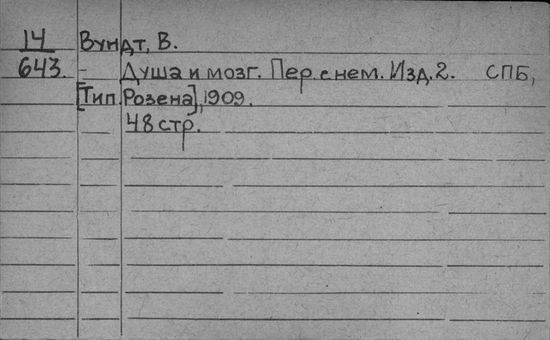 14 Вундт, В.
643. - Душа и мозг. Пер. с нем. Изд. 2. СПБ,
[Тип. Розена], 1909.
48 стр.